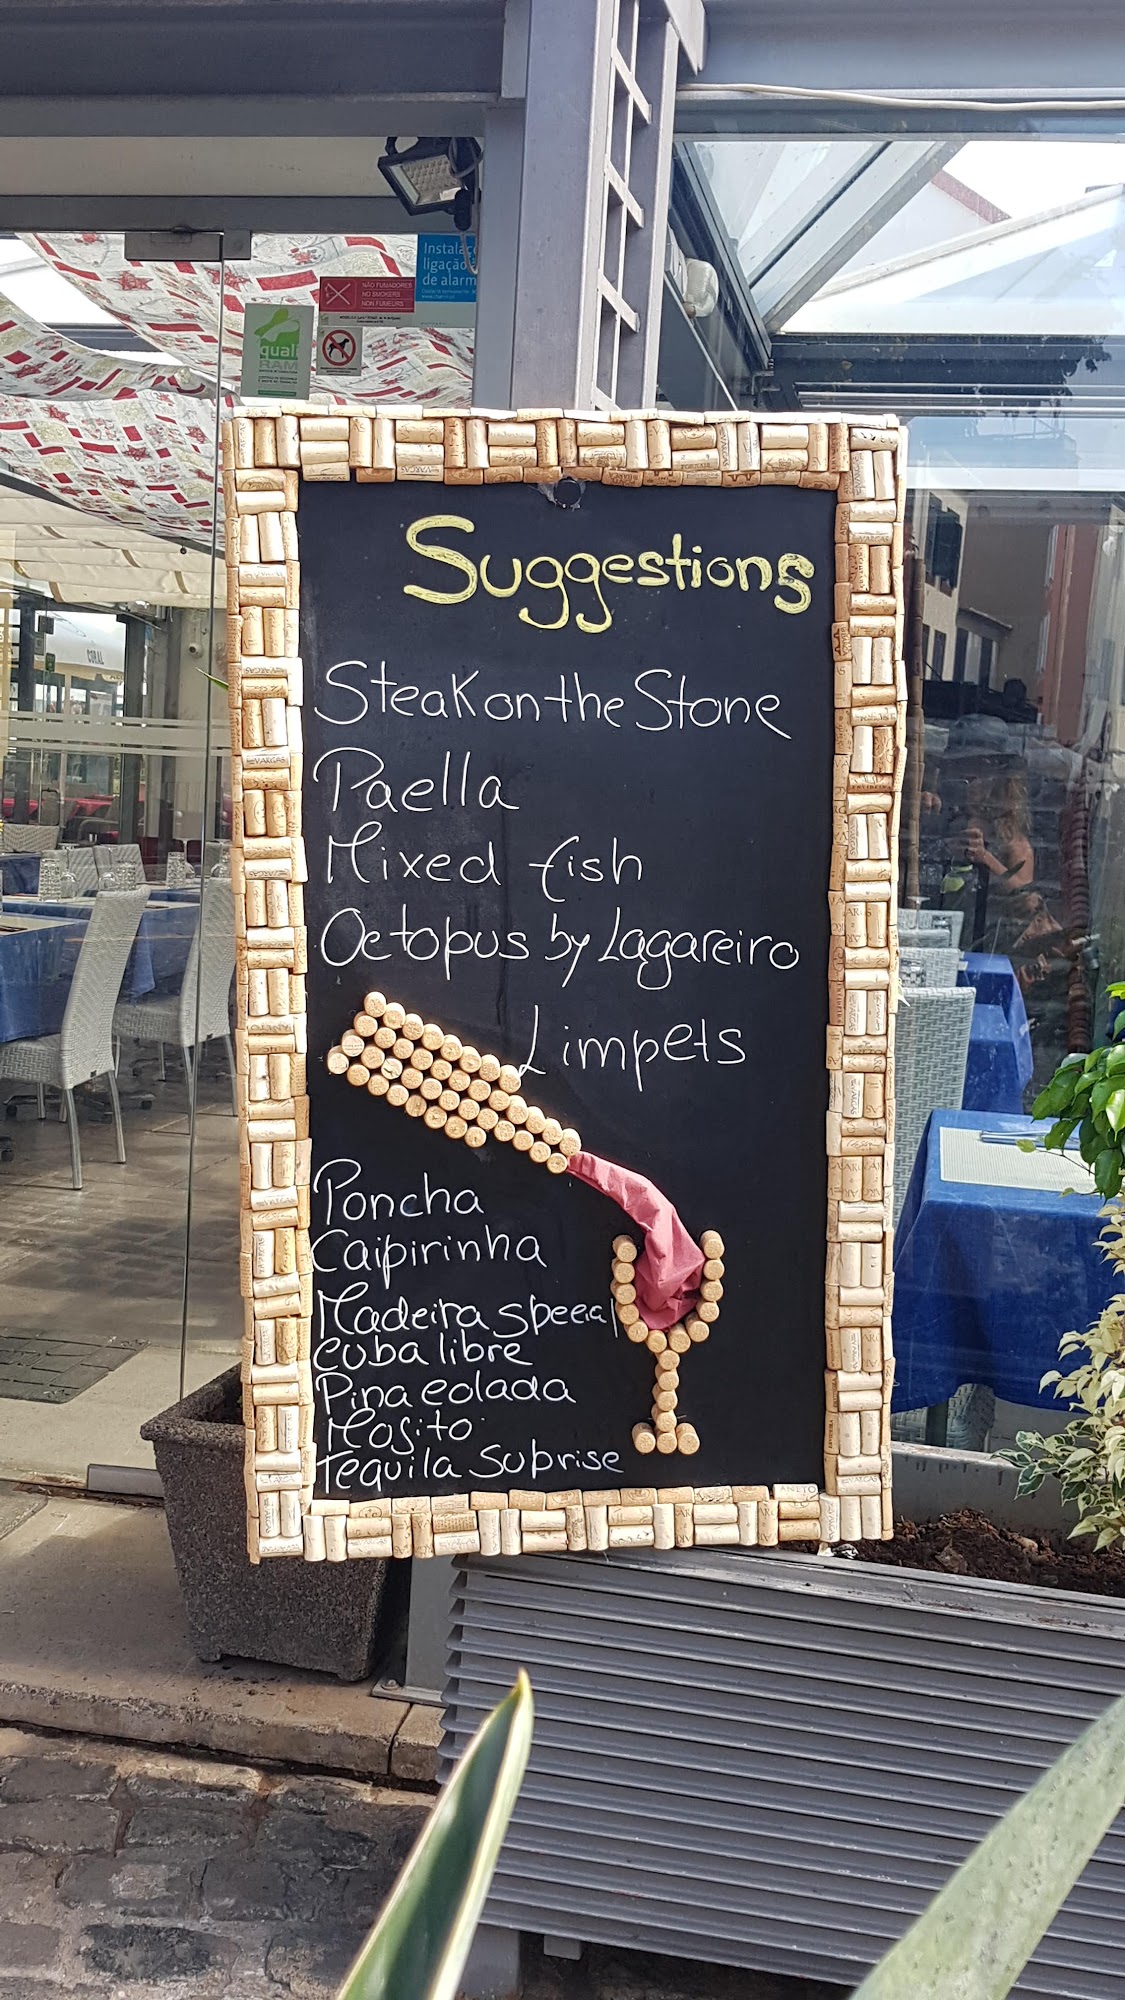 Instalaç
ligação
de alarm
NÃO FUMADORES
NO SMOKERS
NON FUMEURS
quali
RAM
CORAL
Suggestions
Steak on the Stone
Paella
Mixed fish
Octopus by Lagareiro
Limpets
Poncha
Caipirinha
Madeira special
Cuba libre
Pina colada
Mojito
Tequila Subrise